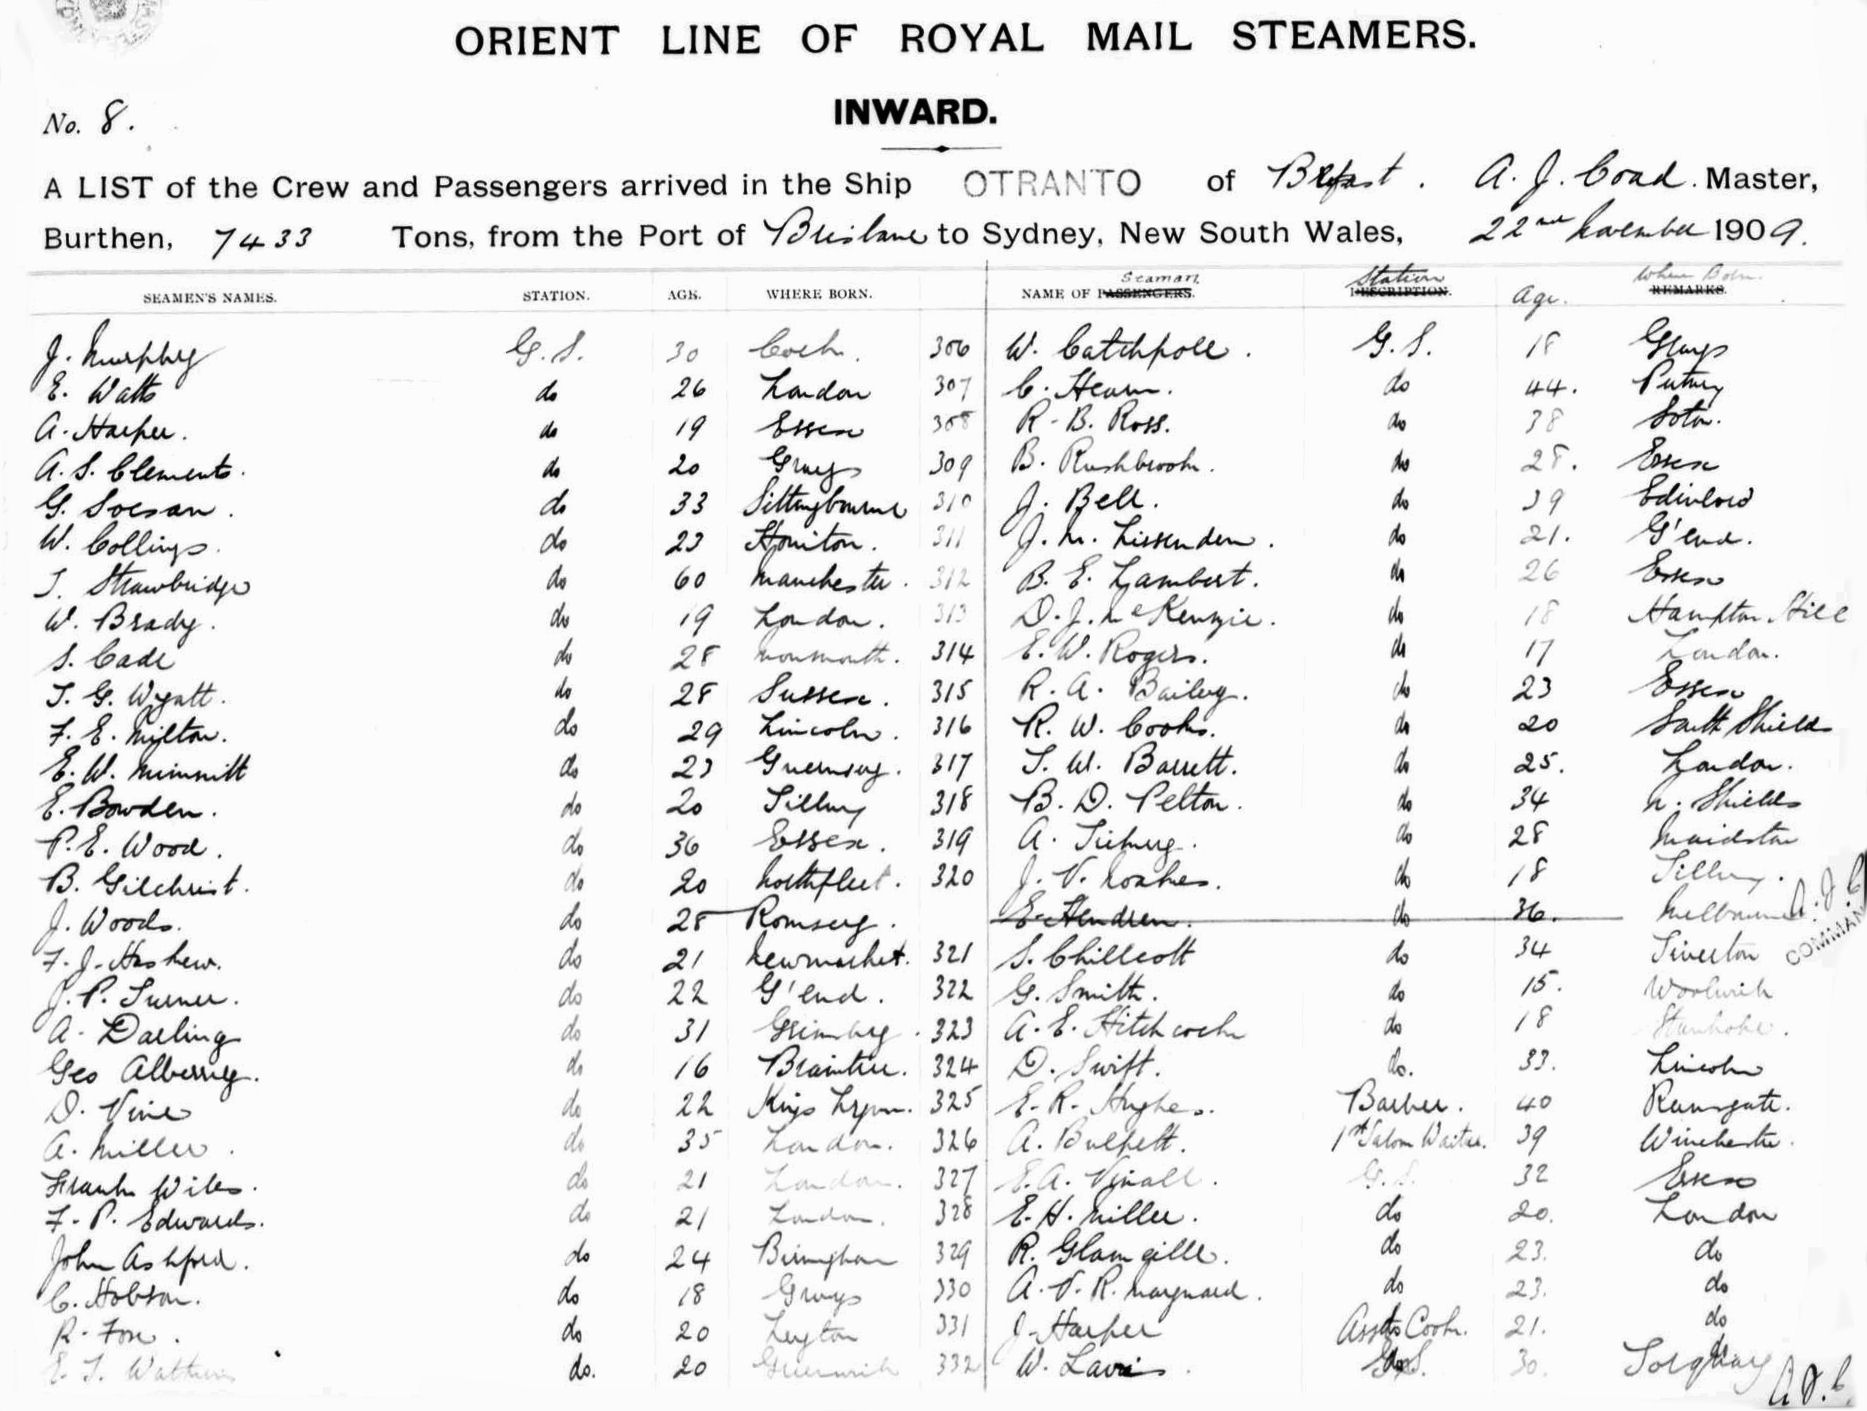 ORIENT LINE OF ROYAL MAIL STEAMERS.
INWARD.
No. 8.
A LIST of the Crew and Passengers arrived in the Ship OTRANTO of Belfast. A. J. Coad. Master,
Burthen, 7433 Tons, from the Port of Brisbane to Sydney, New South Wales, 22nd November 1909.
SEAMEN'S NAMES. STATION. AGE. WHERE BORN. NAME OF PASSENGERS. Seaman DESCRIPTION. Station Age. REMARKS. Where Born.
J. Murphy G.S. 30 Cork. 306 W. Catchpole. G.S. 18 Grays
E. Watts do 26 London 307 C. Hearn. do 44. Putney
A. Harper. do 19 Essex 308 R. B. Ross. do 38 Soton.
A. S. Clements. do 20 Grays 309 B. Rushbrook. do 28. Essex
G. do 33 Sittingbourne 310 J. Bell. do 39
W. Collings. do 23 Honiton. 311 J. M. Lissenden. do 21. G'end.
T. Strawbridge do 60 Manchester. 312 B. E. Lambert. do 26 Essex
W. Brady. do 19 London. 313 D. J. McKenzie. do 18 Hampton Hill
S. Cade do 28 Monmouth. 314 E. W. Rogers. do 17 London.
T. G. Wyatt. do 28 Sussex. 315 R. A. Bailey. do 23 Essex
F. E. Milton. do 29 Lincoln. 316 R. W. Cooks. do 20 South Shields
E. W. Mimmitt do 23 Guernsey. 317 T. W. Barrett. do 25. London.
E. Bowden. do 20 Tilbury 318 B. D. Pelton. do 34 N. Shields
P. E. Wood. do 36 Essex. 319 A. do 28 Maidston
B. Gilchrist. do 20 Northfleet. 320 J. V. Noakes. do 18 Tilbury.
J. Woods. do 28 Romsey. E. Hendren. do 36. Melbourne. A.J.C.
F. J. Haskew. do 21 Newmarket. 321 S. Chillcott do 34 Tiverton COMMAN
J. P. Turner. do 22 G'end. 322 G. Smith. do 15. Woolwich
A. Darling do 31 Grimsby. 323 A. E. Hitchcock do 18 Stanhope.
Geo Alberry. do 16 Braintree. 324 D. Swift. do. 33. Lincoln
D. Vine do 22 Kings Lynn. 325 E. R. Hughes. Barber. 40 Ramsgate.
A. Miller. do 35 London. 326 A. Bulpett. 1st Saloon Waiter. 39 Winchester.
Frank Wiles. do 21 London. 327 E. A. Vinall. G.S. 32 Essex
F. P. Edwards. do 21 London. 328 E. H. Miller. do 20. London
John Ashford. do 24 Birmingham 329 R. do 23. do
C. Hobson. do 18 Grays 330 A. V. R. Maynard. do 23. do
R. Fox. do 20 Leyton 331 J. Harper Asst Cook. 21. do
E. T. Watkins do. 20 Greenwich 332 W. Lavis. G.S. 30. Torquay A.J.C.